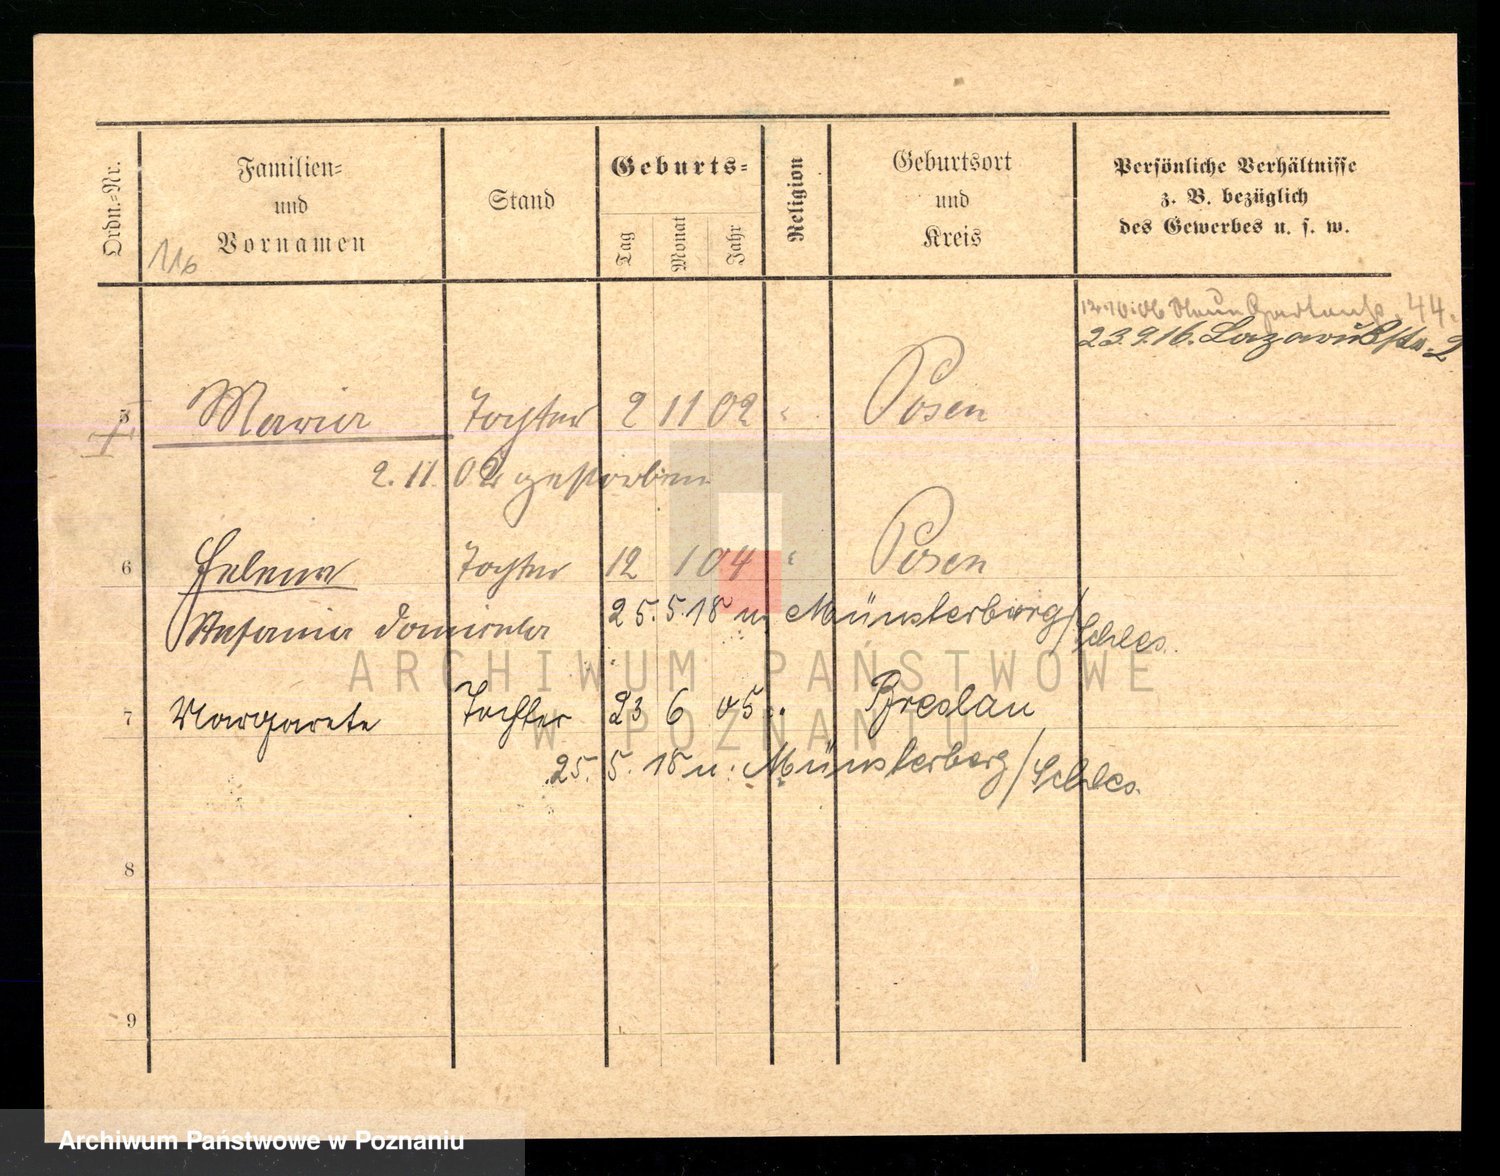 Ordn.=Nr.
Familien=
und
Vornamen
Stand
Geburts=
Tag
Monat
Jahr
Religion
Geburtsort
und
Kreis
Persönliche Verhältnisse
z. B. bezüglich
des Gewerbes u. s. w.
11b
44.
23.9.16. Lazarusstr. 2
5 Maria Tochter 2 11 02 " Posen
2. 11. 02 gestorben
6 Helena Tochter 12 1 04 " Posen
25. 5. 18 n. Münsterberg/Schles.
Stefania
7 Margarete Tochter 23 6 05 " Breslau
25. 5. 18 n. Münsterberg/Schles.
8
9
ARCHIWUM PAŃSTWOWE
W POZNANIU
Archiwum Państwowe w Poznaniu